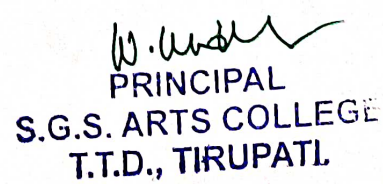 PRINCIPAL
S.G.S. ARTS COLLEGE
T.T.D., TIRUPATI.